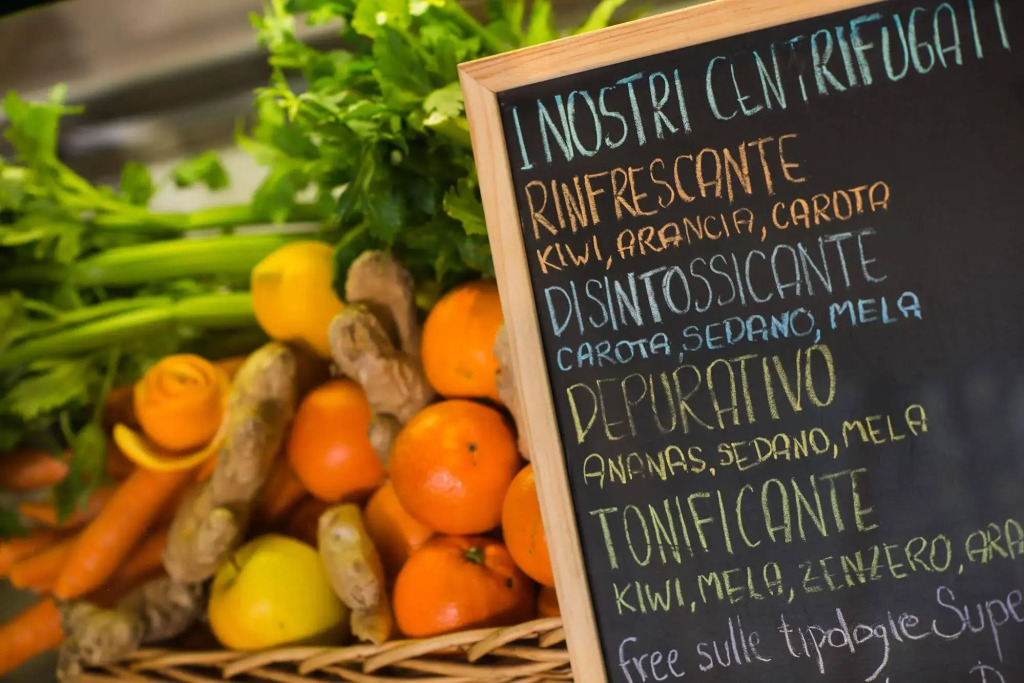 I NOSTRI CENTRIFUGATI
RINFRESCANTE
KIWI, ARANCIA, CAROTA
DISINTOSSICANTE
CAROTA, SEDANO, MELA
DEPURATIVO
ANANAS, SEDANO, MELA
TONIFICANTE
KIWI, MELA, ZENZERO, ARA
free sulle tipologie Supe